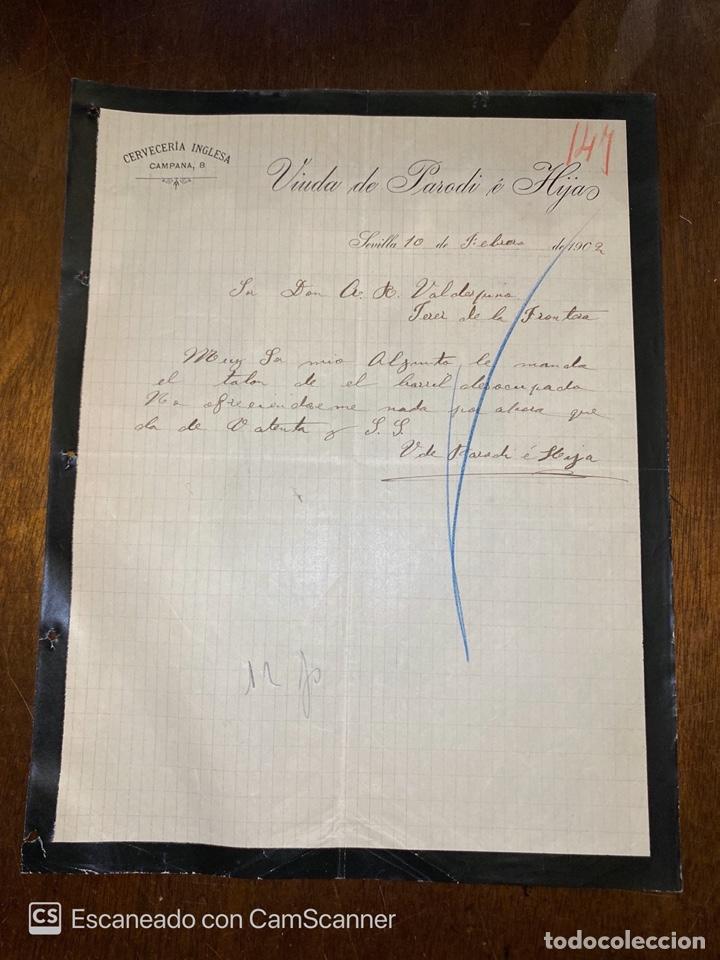 CERVECERÍA INGLESA
CAMPANA, 8
147
Viuda de Parodi é Hija
Sevilla 10 de Febrero de 1902
Sr Don A. R. Valdespino
Jerez de la Frontera
Muy Sr mio Aljunto le manda
el talon de el barril desocupado
No ofreciendose me nada por ahora que
da de V atenta y S. S.
V de Parodi é Hija
12
CS Escaneado con CamScanner
todocoleccion